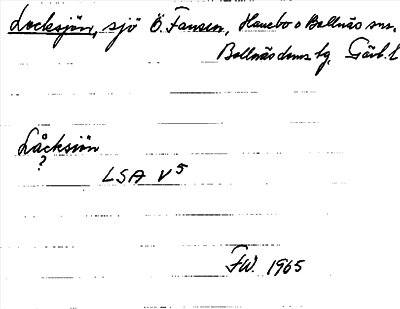 Locksjön, sjö Ö. Fansen, Hanebo o Bollnäs sns.
Bollnäs doms. tg. Gävl. l
Låcksjön
?
LSA V5
FW. 1965